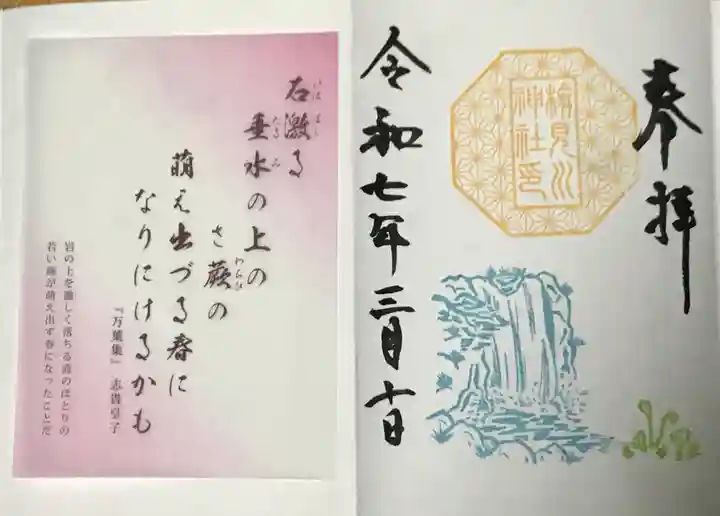 奉拝
検見川
神社印
令和七年三月十日
石激る
垂水の上の
さ蕨の
萌え出づる春に
なりにけるかも
『万葉集』 志貴皇子
岩の上を激しく落ちる滝のほとりの
若い蕨が萌え出す春になったことだ
いは ばし
たる み
わらび